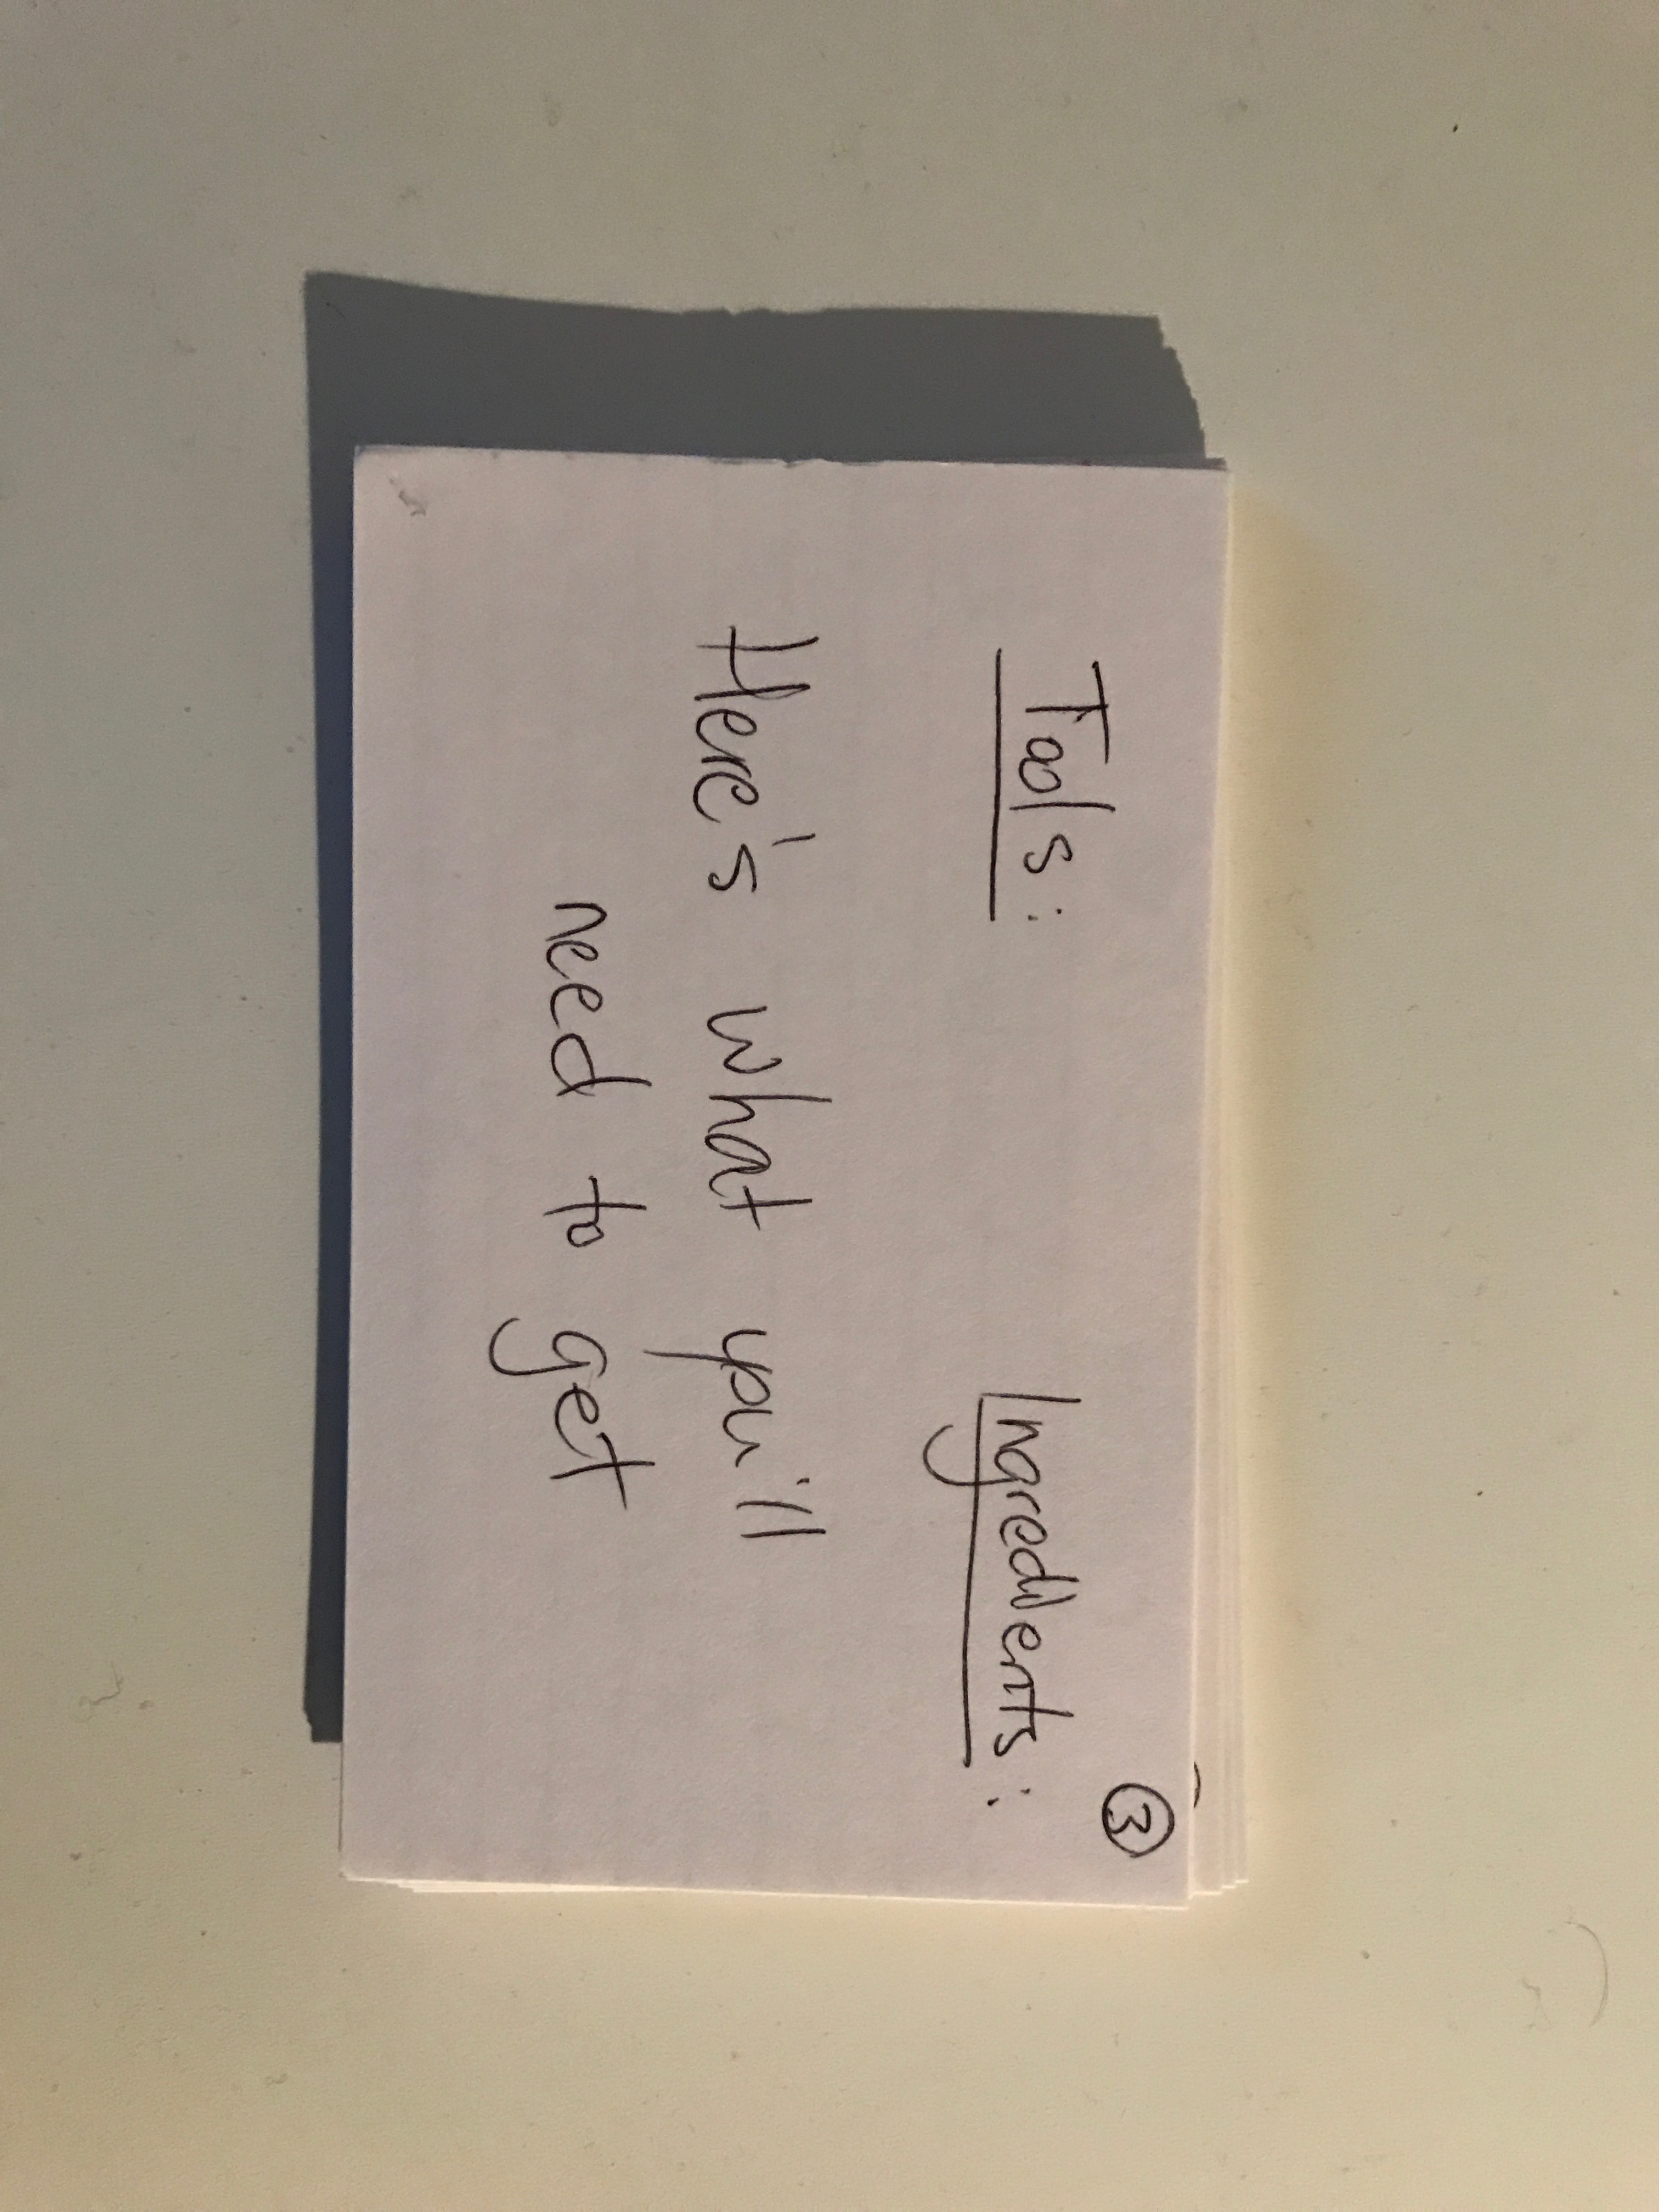 ③
Tools: Ingredients:
Here's what you'll
need to get